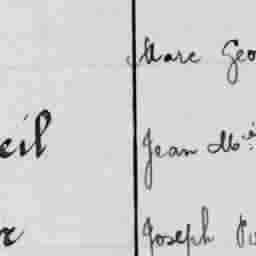 Marc Geo
eil Jean M
r Joseph